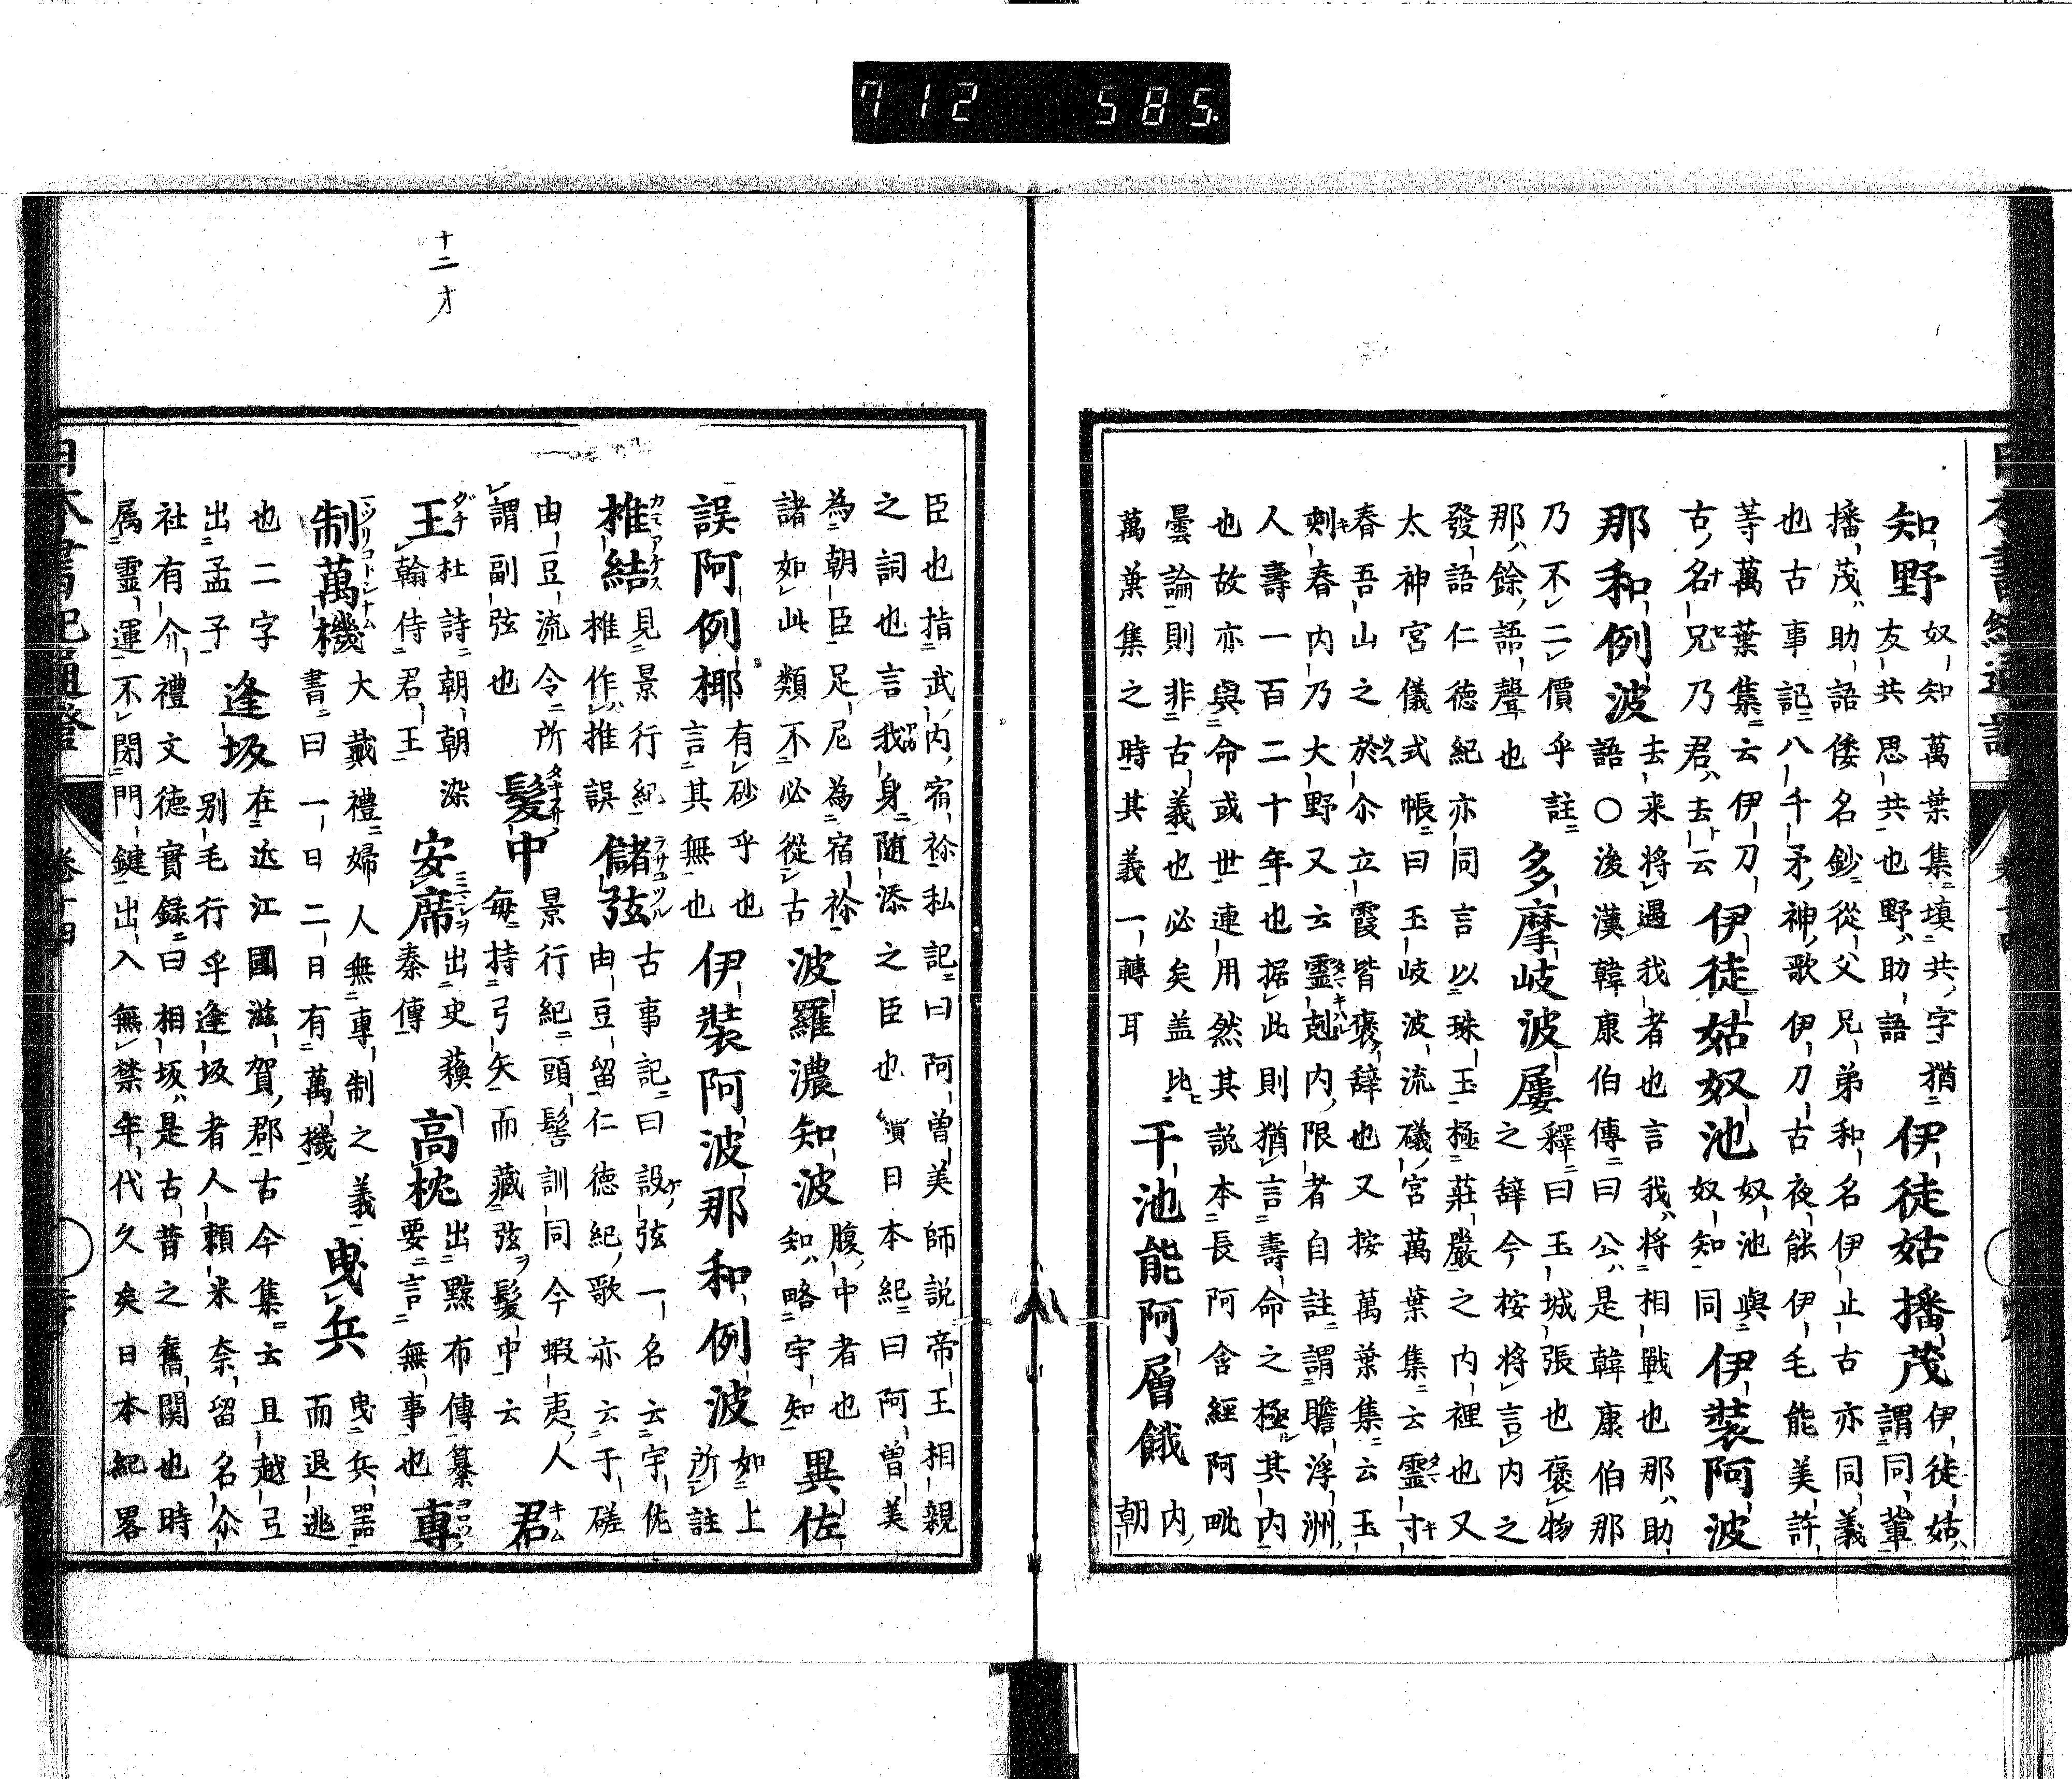 712 585.
知野 奴知萬葉集塡共字猶
友共思共也野助語
伊徒姑播茂 伊徒姑
謂同輩
播茂助語倭名鈔從父兄弟和名伊止古亦同義
也古事記八千矛神歌伊刀古夜能伊毛能美許
等萬葉集云伊刀
古名兄乃君去云
伊徒姑奴池 奴池與
奴知同
伊裝阿波
那和例波 去来将遇我者也言我将相戰也那助
語○後漢韓康伯傳曰公是韓康伯那
乃不二價乎註
那餘語聲也
多摩岐波屢 釋曰玉城張也褒物
之辞今按将言内之
發語仁徳紀亦同言以珠玉極莊嚴之内裡也又
太神宮儀式帳曰玉岐波流礒宮萬葉集云靈寸
春吾山之於尒立霞皆褒辞也又按萬葉集云玉
刺春内乃大野又云靈剋内限者自註謂瞻浮洲
人壽一百二十年也据此則猶言壽命之極其内
也故亦與命或世連用然其説本長阿含經阿毗
曇論則非古義也必矣盖比
干池能阿層餓 内
朝
萬葉集之時其義一轉耳
十二才
臣也指武内宿祢私記曰阿曽美師説帝王相親
之詞也言我身随添之臣也嬪日本紀曰阿曽美
為朝臣足尼為宿祢
諸如此類不必從古
波羅濃知波 腹中者也
知略宇知
異佐
誤阿例椰 有砂乎也
言其無也
伊裝阿波那和例波 如上
所註
推結 見景行紀
推作推誤
儲弦 古事記曰設弦一名云宇佐
由豆留仁徳紀歌亦云于磋
由豆流令所
謂副弦也
髮中 景行紀頭髻訓同今蝦夷人
毎持弓矢而藏弦髮中云
君
王 杜詩朝朝染
翰侍君王
安席 出史蘓
秦傳
高枕 出黥布傳纂
要言無事也
專
制萬機 大戴禮婦人無專制之義
書曰一日二日有萬機
曳兵 曳兵器
而退逃
也二字
出孟子
逢坂 在近江國滋賀郡古今集云且越弓
別毛行乎逢坂者人頼米奈留名尒
社有介禮文徳實録曰相坂是古昔之舊関也時
属靈運不閉門鍵出入無禁年代久矣日本紀畧